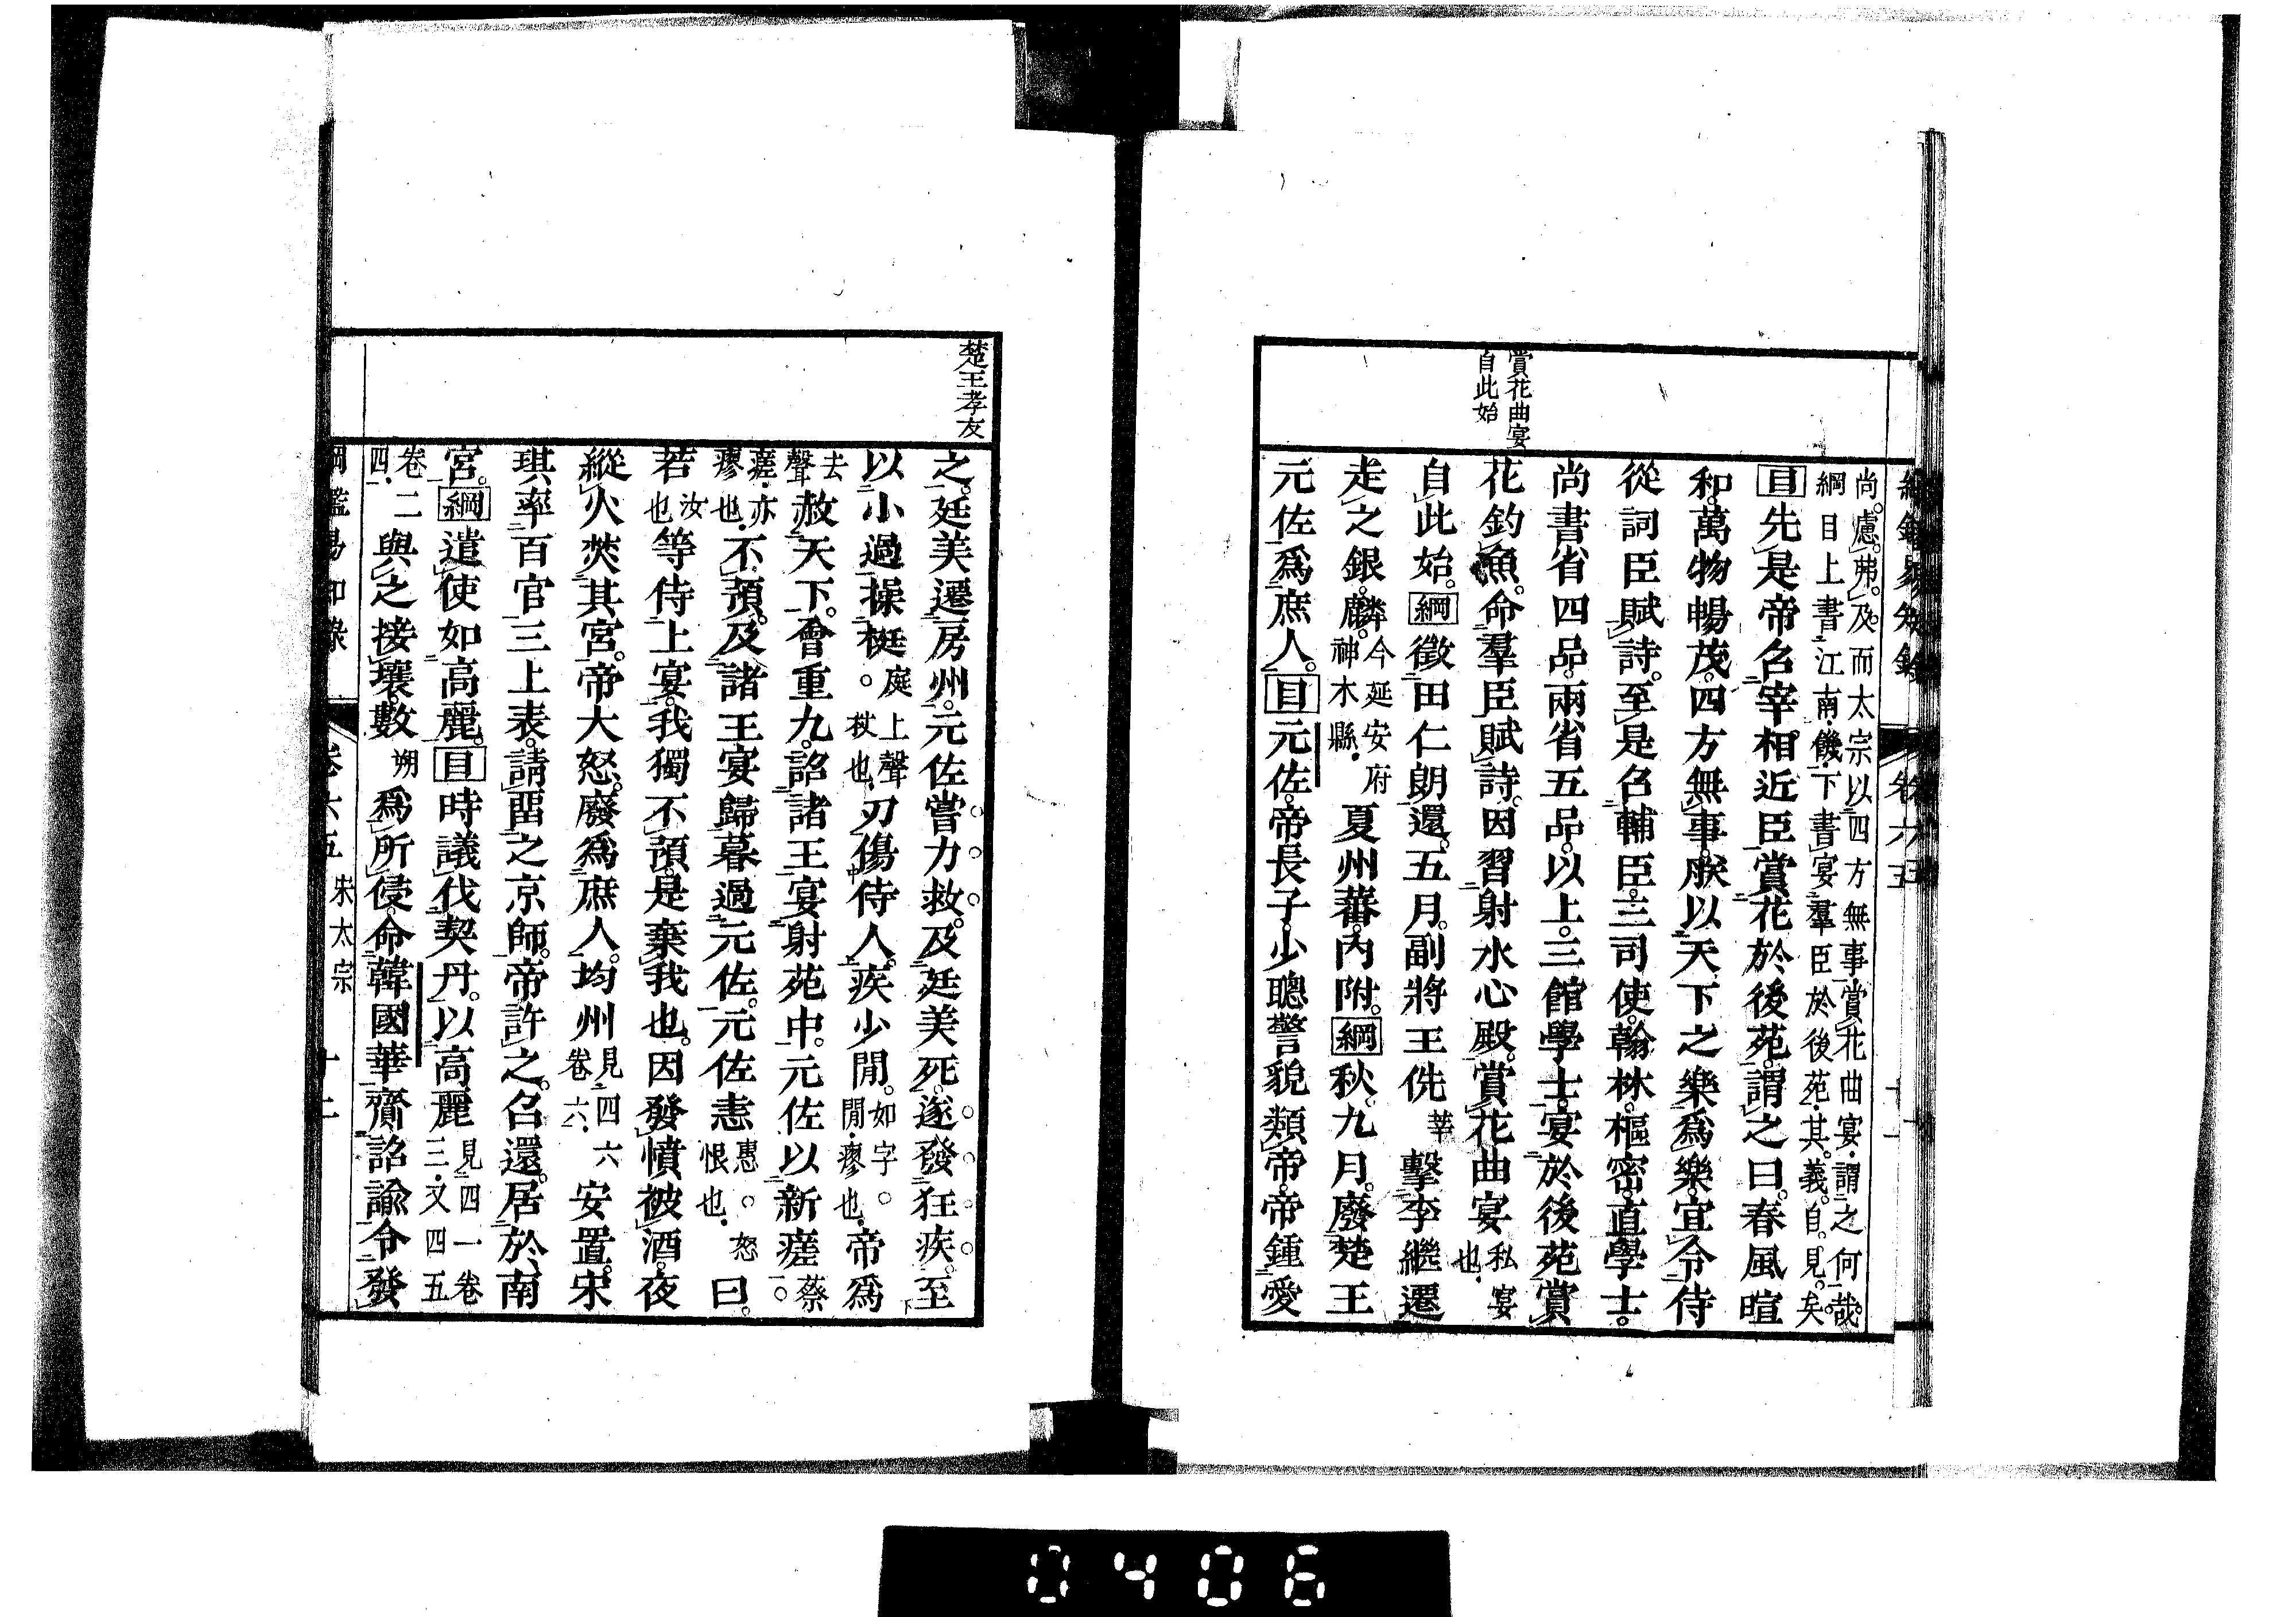 賞花曲宴
自此始
尚慮弗及而太宗以四方無事賞花曲宴謂之何哉
綱目上書江南饑下書宴羣臣於後苑其義自見矣
目先是帝召宰相近臣賞花於後苑謂之曰春風暄
和萬物暢茂四方無事朕以天下之樂爲樂宜令侍
從詞臣賦詩至是召輔臣三司使翰林樞密直學士
尚書省四品兩省五品以上三館學士宴於後苑賞
花釣魚命羣臣賦詩因習射水心殿賞花曲宴私宴也
自此始綱徵田仁朗還五月副將王侁莘擊李繼遷
走之銀麟今延安府神木縣夏州蕃內附綱秋九月廢楚王
元佐爲庶人目元佐帝長子少聰警貌類帝帝鍾愛
楚王孝友
之廷美遷房州元佐嘗力救及廷美死遂發狂疾至
以小過操梃庭上聲。杖也刃傷侍人疾少閒如字。閒瘳也帝爲
去聲赦天下會重九詔諸王宴射苑中元佐以新瘥蔡。
瘥亦瘳也不預及諸王宴歸暮過元佐元佐恚恚。怒恨也曰
若汝也等侍上宴我獨不預是棄我也因發憤被酒夜
縱火焚其宮帝大怒廢爲庶人均州見四六卷六安置宋
琪率百官三上表請畱之京師帝許之召還居於南
宮綱遣使如高麗目時議伐契丹以高麗見四一卷三又四五
卷二四與之接壤數朔爲所侵命韓國華齎詔諭令發
卷六五 宋太宗